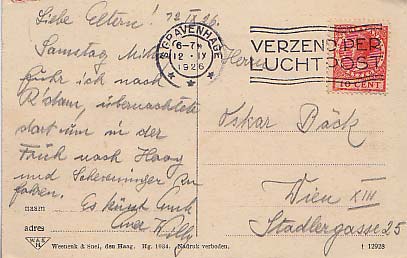 Liebe Eltern! 12 IX 26.
Samstag Mitt.
fuhr ich nach
R'dam, übernachtete
dort um in der
Früh nach Haag
und Scheveningen zu
fahren.
Es küsst Euch
Euer Willy
naam
adres
'S GRAVENHAGE
6-7 N
12 IX
1926
VERZEND PER
LUCHTPOST
10 CENT
Herrn
Oskar Bäck
Wien XIII
Stadlergasse 25
W&S
H
Weenenk & Snel, den Haag. Hg. 1034. Nadruk verboden.
† 12928